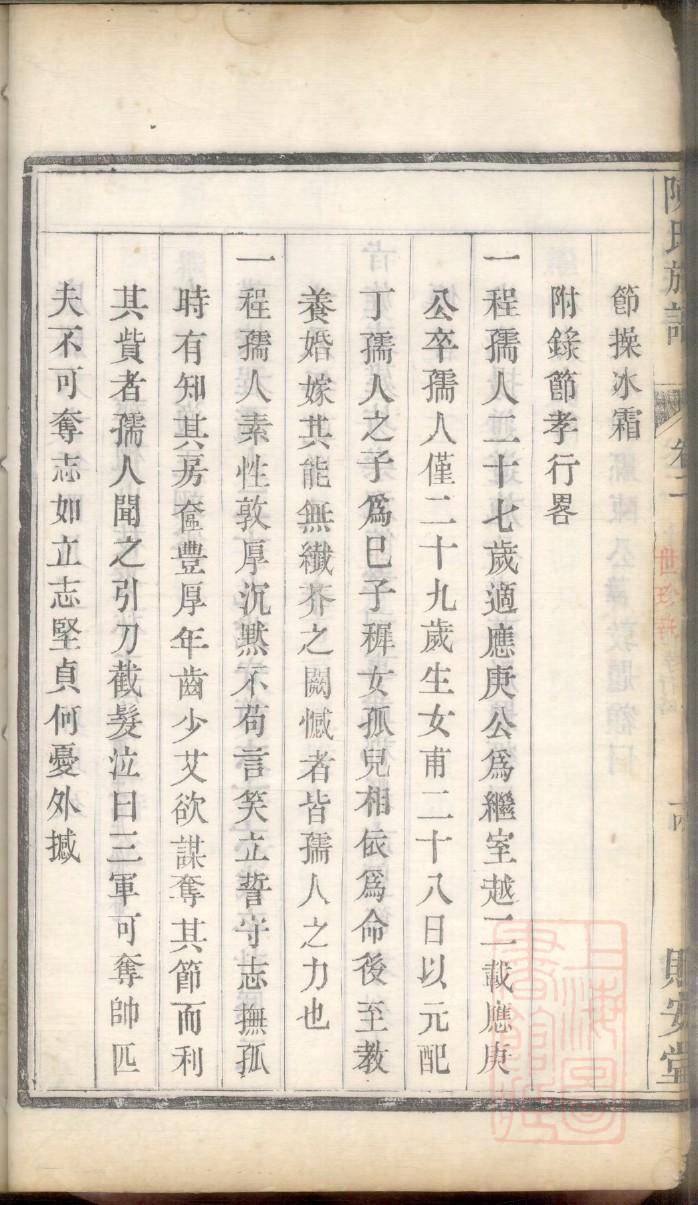 節操冰霜
附錄節孝行畧
一程孺人二十七歲適應庚公爲繼室越二載應庚
公卒孺人僅二十九歲生女甫二十八日以元配
丁孺人之子爲已子穉女孤兒相依爲命後至教
養婚嫁其能無纖芥之闕憾者皆孺人之力也
一程孺人素性敦厚沉默不苟言笑立誓守志撫孤
時有知其房奩豐厚年齒少艾欲謀奪其節而利
其貲者孺人聞之引刀截髮泣曰三軍可奪帥匹
夫不可奪志如立志堅貞何憂外撼
陳氏族譜
世珍
賜安堂
上海圖書館藏